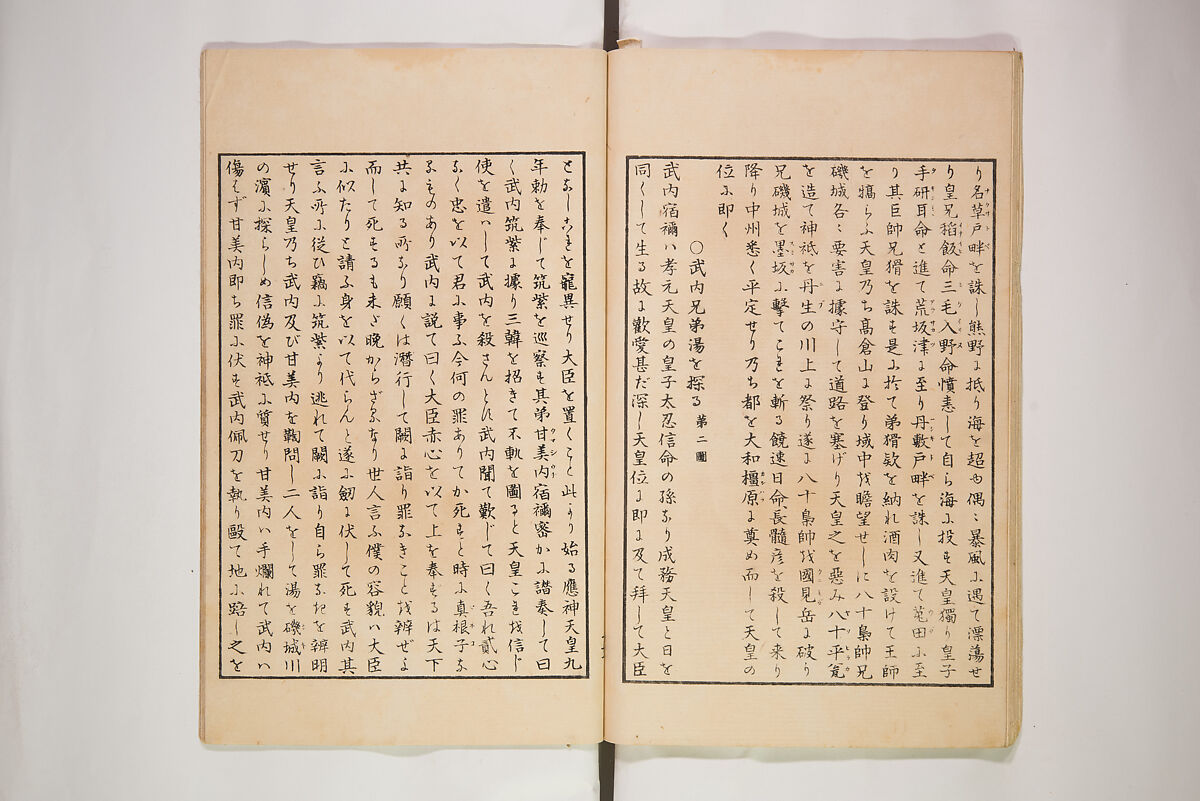 り名草戸畔を誅し熊野に抵り海を超ゆ偶〻暴風に遇て漂蕩せ
り皇兄稻飯命三毛入野命憤恚して自ら海に投ず天皇獨り皇子
手研耳命と進て荒坂津に至り丹敷戸畔を誅し又進て菟田に至
り其巨師兄猾を誅す是に於て弟猾欵を納れ酒肉を設けて王師
を犒らふ天皇乃ち髙倉山に登り域中を瞻望せしに八十梟帥兄
磯城各〻要害に據守して道路を塞げり天皇之を惡み八十平瓮
を造て神祇を丹生の川上に祭り遂に八十梟帥を國見岳に破り
兄磯城を墨坂に擊てこれを斬る饒速日命長髓彦を殺して来り
降り中州悉く平定せり乃ち都を大和橿原に奠め而して天皇の
位に即く
〇武内兄弟湯を探る 第二圖
武内宿禰ハ孝元天皇の皇子太忍信命の孫なり成務天皇と日を
同くして生る故に歡愛甚だ深し天皇位に即に及て拜して大臣
となしこれを寵異せり大臣を置くこと此より始る應神天皇九
年勅を奉じて筑紫を巡察す其弟甘美内宿禰密かに譛奏して曰
く武内筑紫に據り三韓を招きて不軌を圖ると天皇これを信じ
使を遣はして武内を殺さんとす武内聞て歎じて曰く吾れ貳心
なく忠を以て君に事ふ今何の罪ありてか死すと時に真根子な
るものあり武内に説て曰く大臣赤心を以て上を奉ずるは天下
共に知る所なり願くは潛行して闕に詣り罪なきことを辨ぜよ
而して死するも未だ晩からざるなり世人言ふ僕の容貌ハ大臣
に似たりと請ふ身を以て代らんと遂に劒に伏して死す武内其
言ふ所に從ひ竊に筑紫より逃れて闕に詣り自ら罪なきを辨明
せり天皇乃ち武内及び甘美内を鞫問し二人をして湯を磯城川
の濱に探らしめ信偽を神祇に質せり甘美内ハ手爛れて武内ハ
傷はず甘美内即ち罪に伏す武内佩刀を執り毆て地に踣し之を